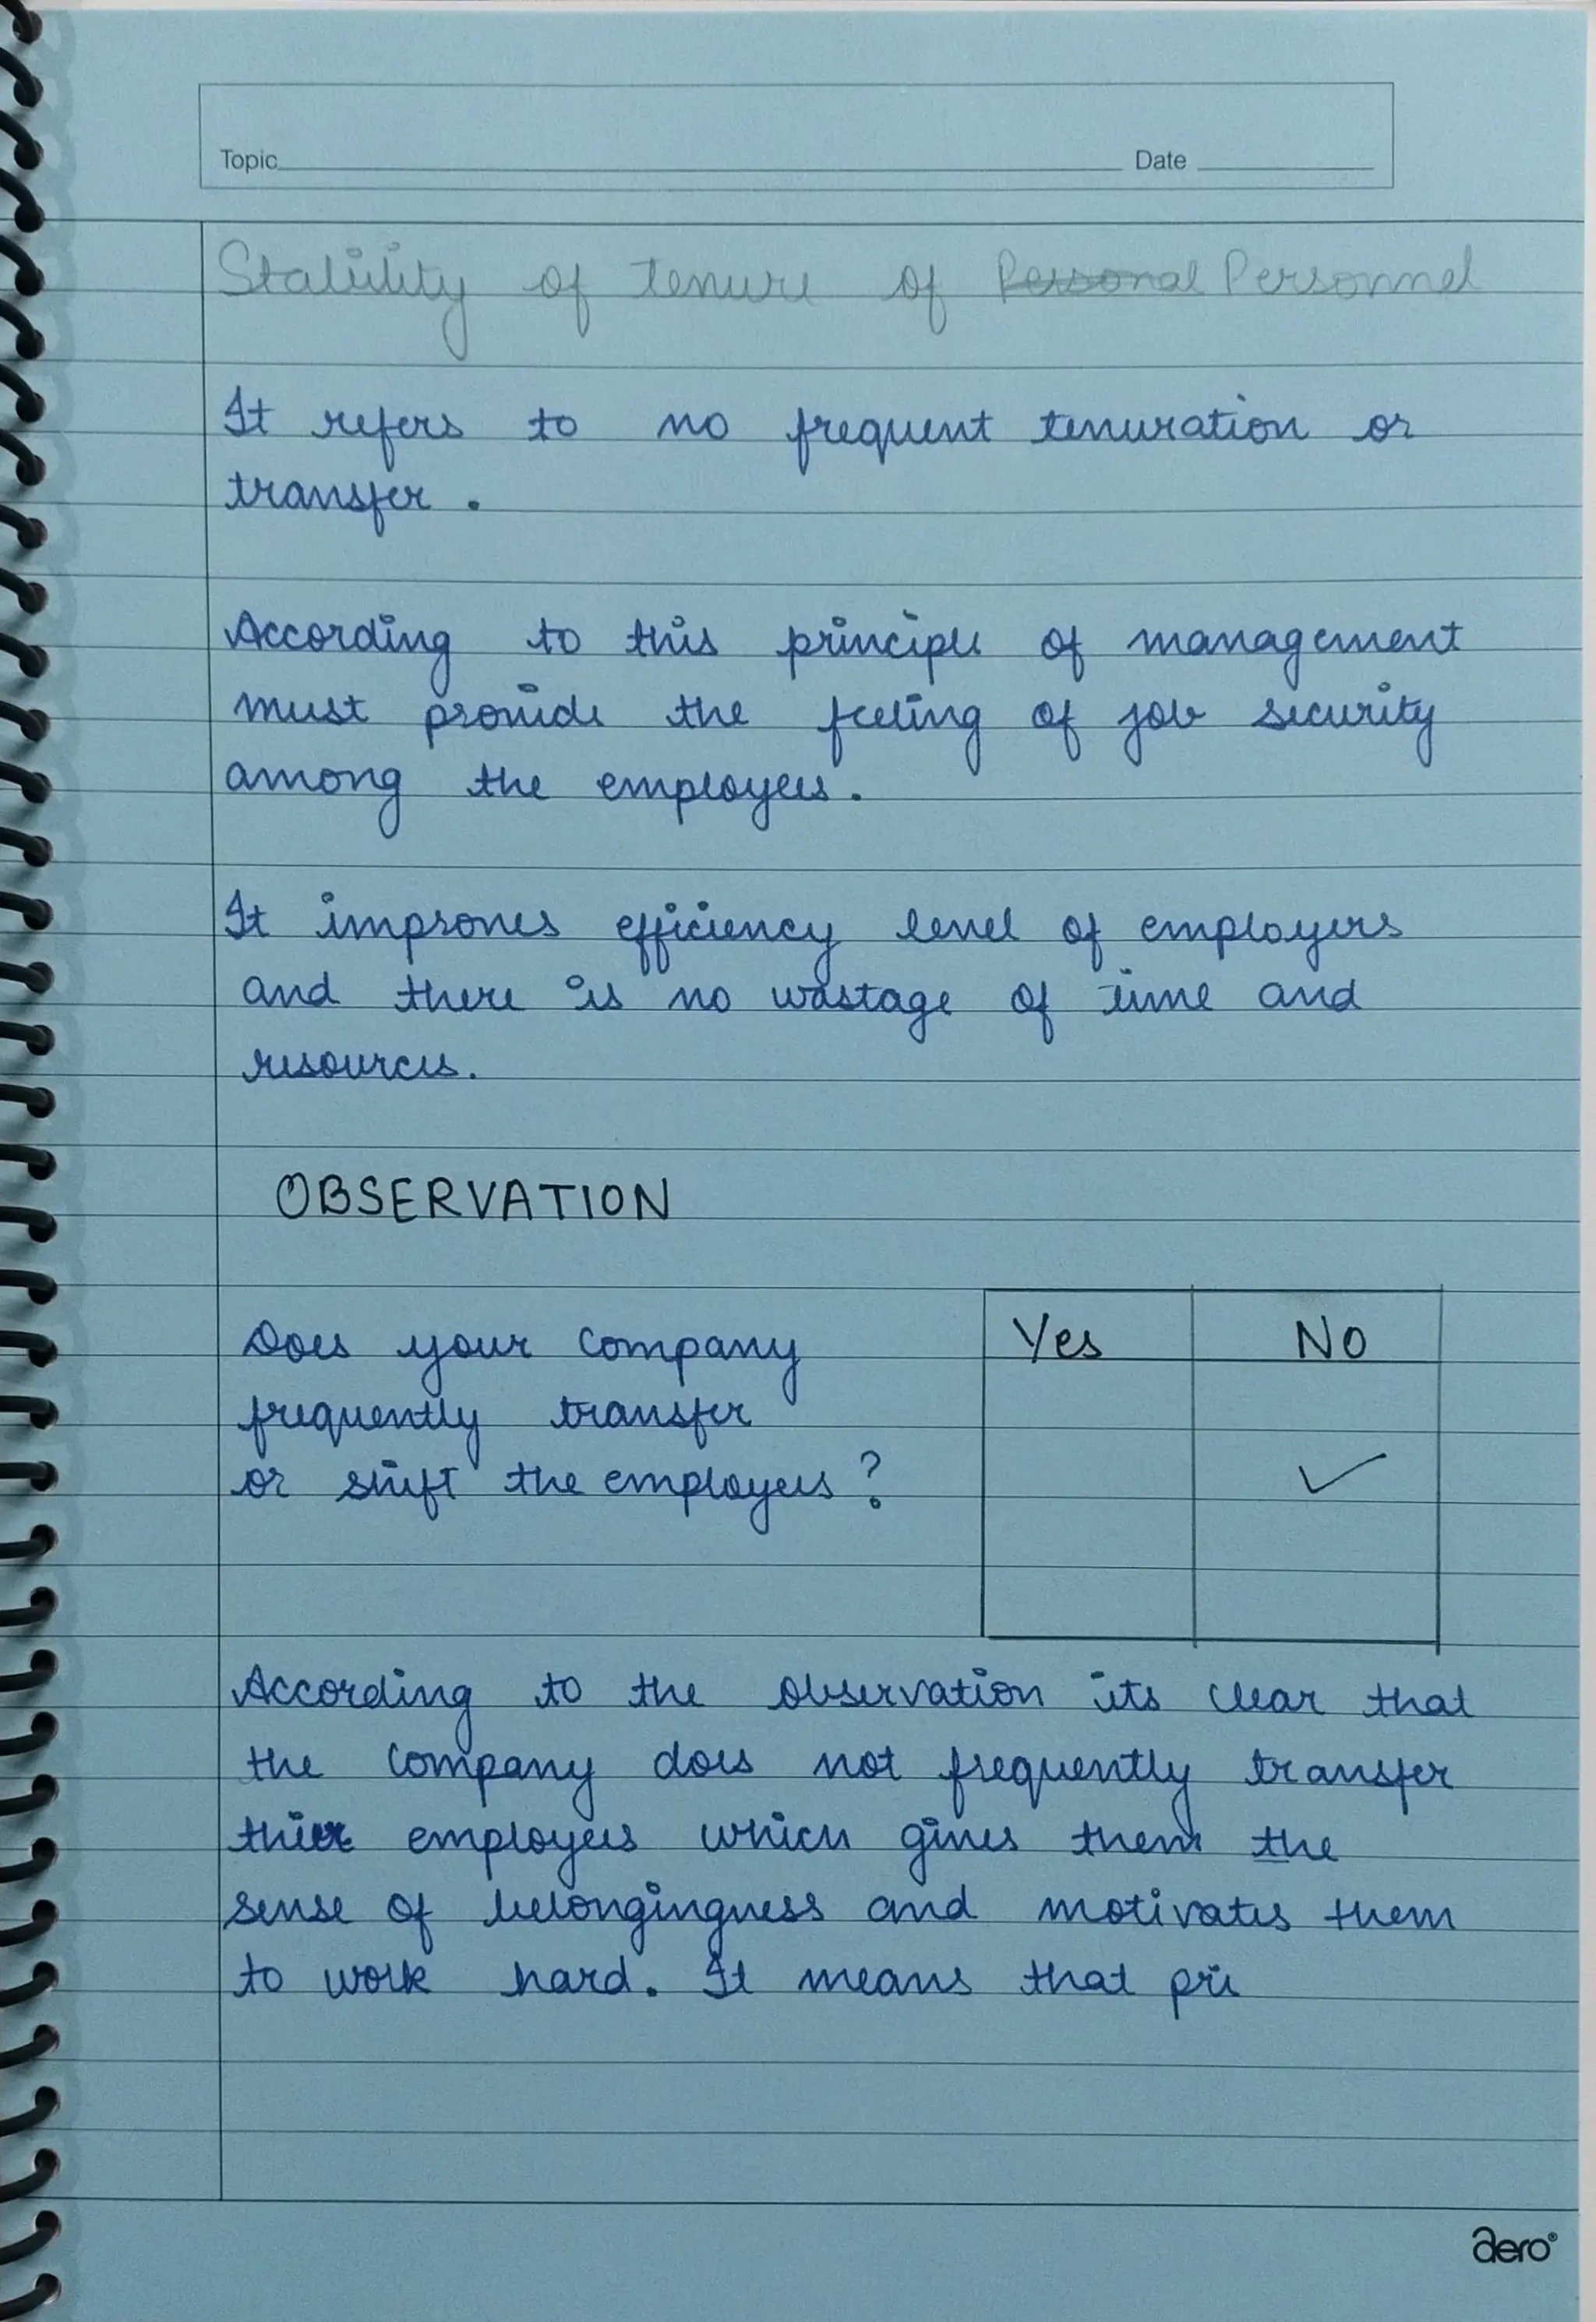 Topic Date
Stability of tenure of Personal Personnel
It refers to no frequent tenuration or
transfer.
According to this principle of management
must provide the feeling of job security
among the employees.
It improves efficiency level of employers
and there is no wastage of time and
resources.
OBSERVATION
Yes No
Does your company
frequently transfer
or shift the employees?
✓
According to the observation its clear that
the company does not frequently transfer
thier employees which gives them the
sense of belongingness and motivates them
to work hard. It means that pri
aero